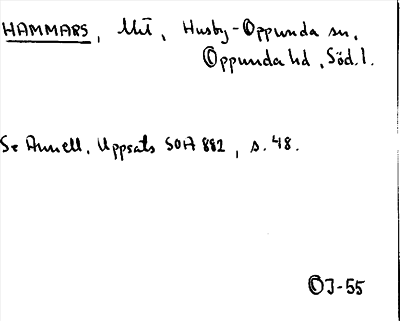 HAMMARS, Mt, Husby-Oppunda sn,
Oppunda hd, Söd. l.
Se Annell, Uppsats SOA 882, s. 48.
OJ-55